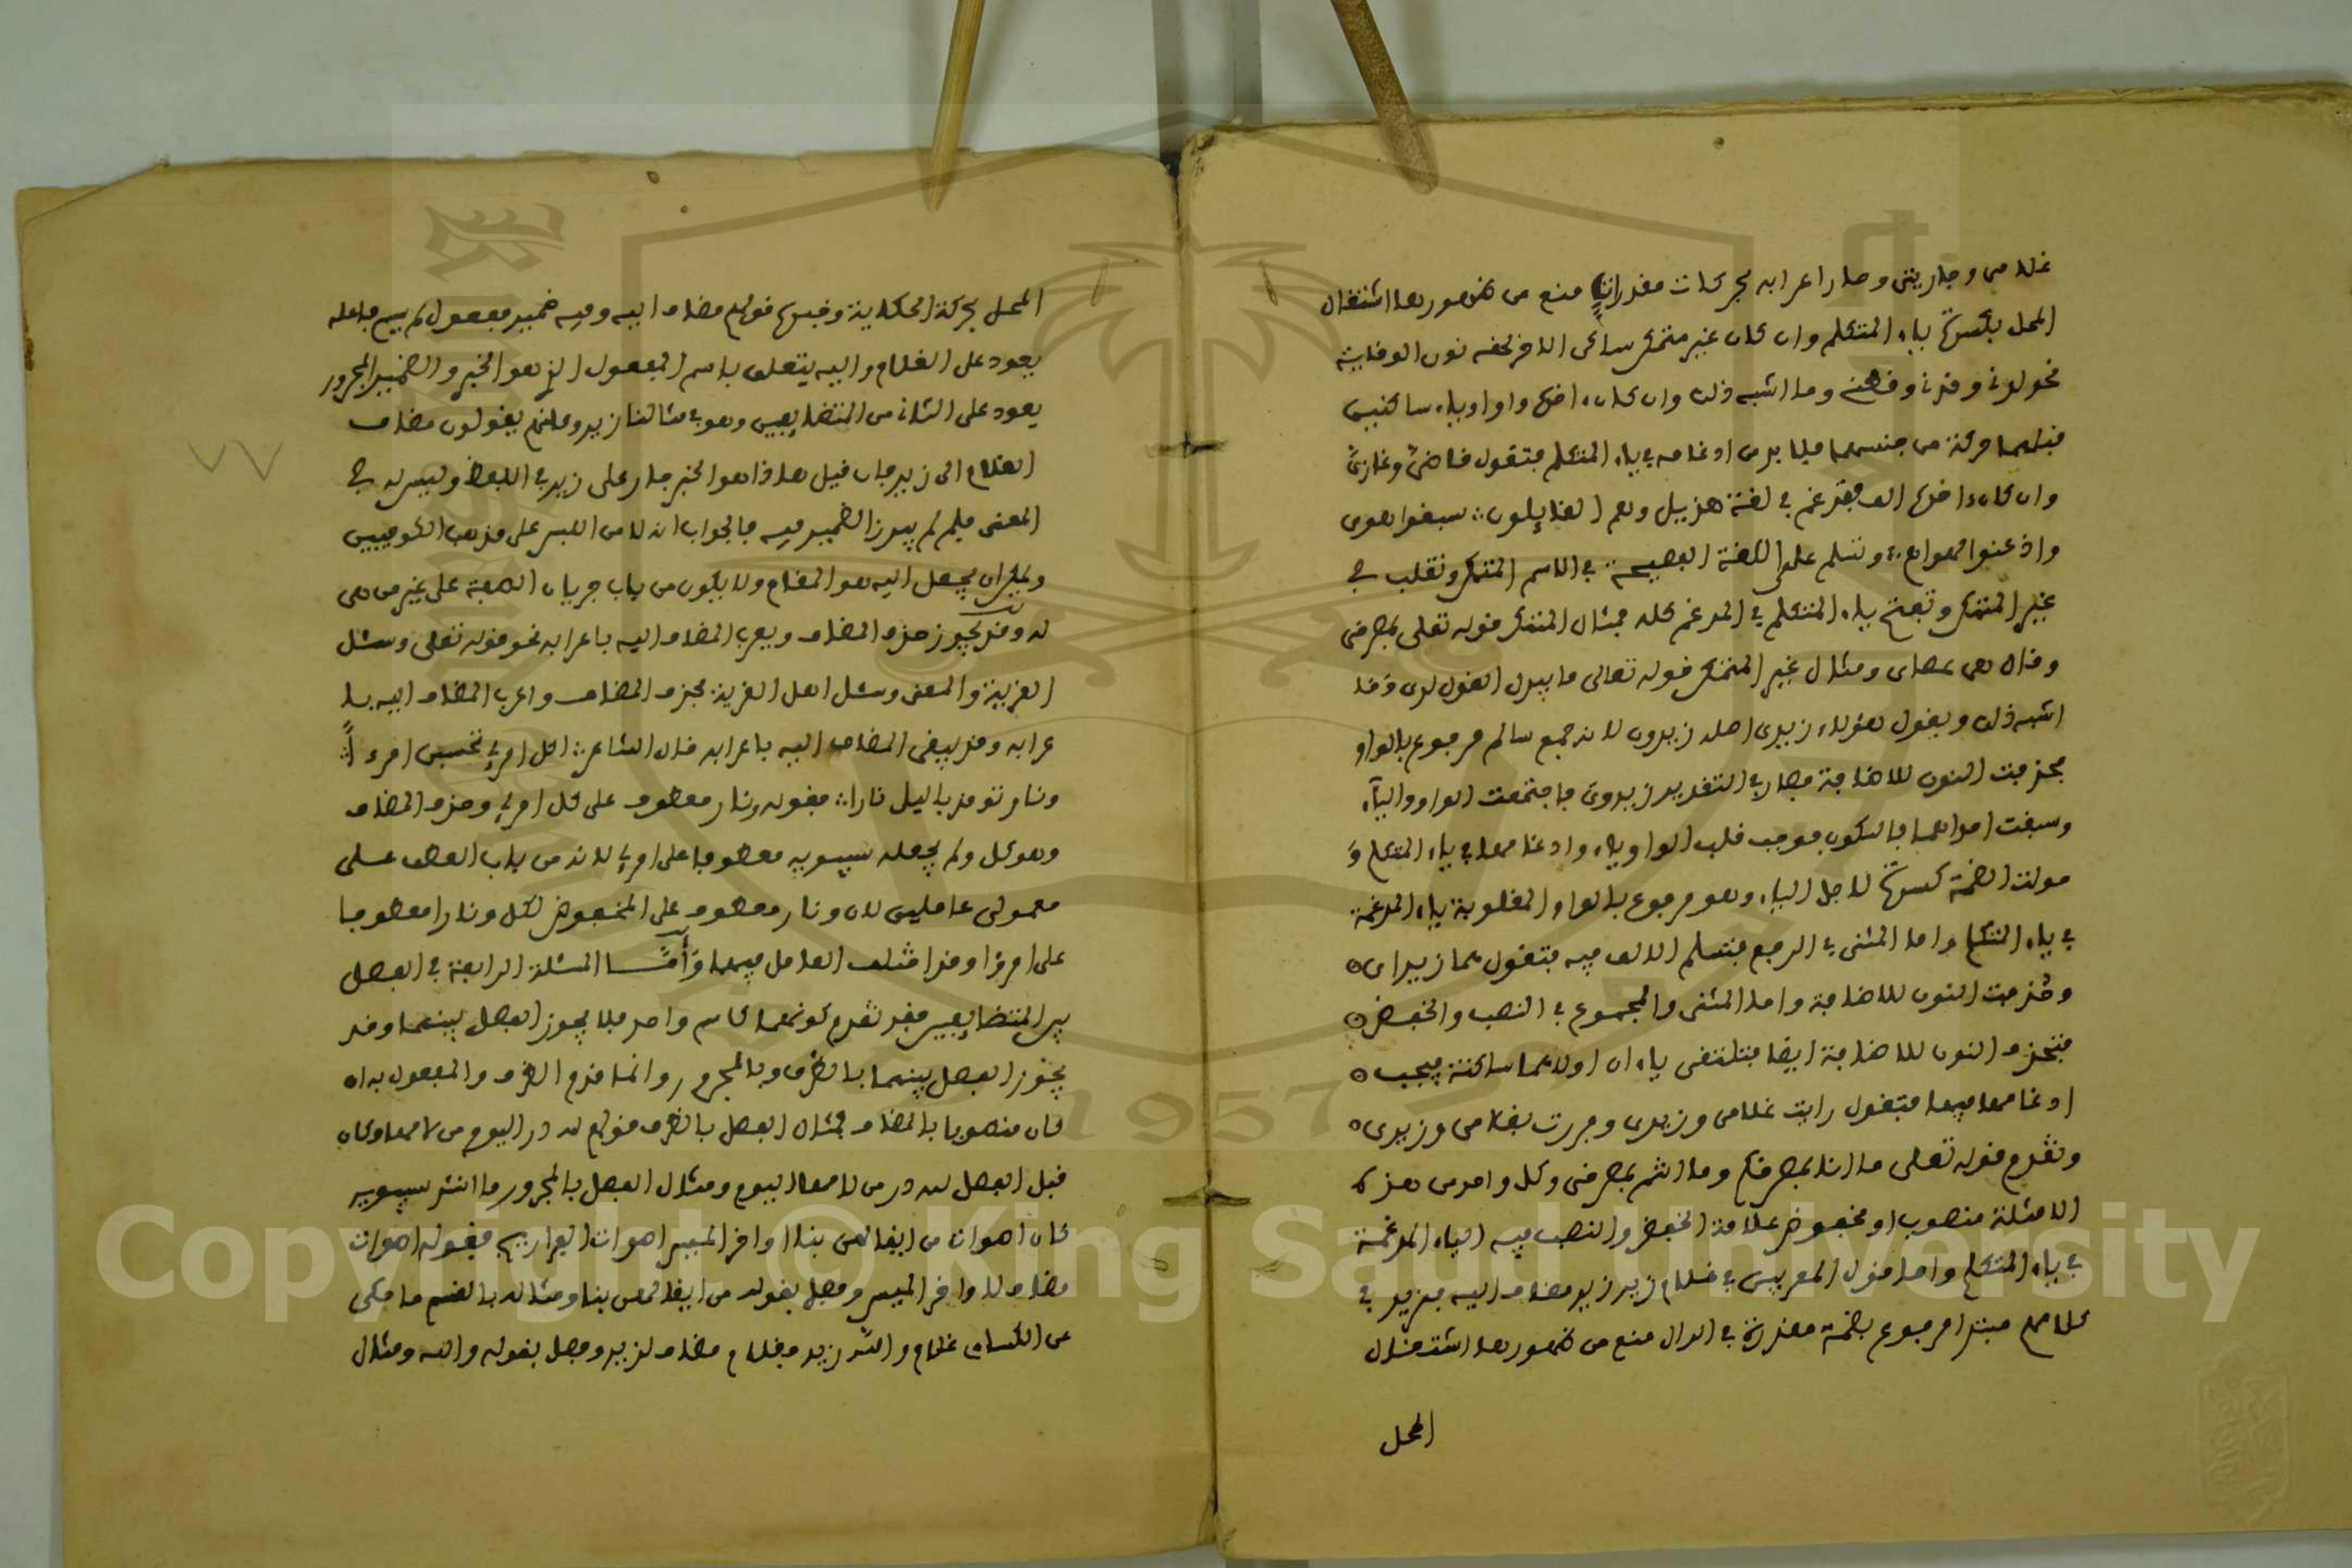 غلامى وجاريتى وصار اعرابه بحركات مقدرات منع من ظهورها اشتغال
المحل بكسرة ياء المتكلم وان كان غير متمكن ساكن الاخر لحقه نون الوقاية
نحو لدنى وقدنى وقطنى وما اشبه ذلك وان كان اخره واوا وياء ساكنين
قبلهما حركة من جنسهما فلا بد من ادغامه في ياء المتكلم فتقول قاضيّ وغازيّ
وان كان اخره الف فتدغم في لغة هذيل وهم القايلون سبقوا هوى
واعنقوا لهواهم وتسلم على اللغة الفصيحة في الاسم المتمكن وتقلب في
غير المتمكن وتفتح ياء المتكلم في المدغم كله فمثال المتمكن قوله تعلى بمصرخى
وقال هى عصاى ومثال غير المتمكن قوله تعالى ما يبدل القول لدى وما
اشبه ذلك ويقول هؤلاء زيدى اصله زيدون لانه جمع سالم مرفوع بالواو
فحذفت النون للاضافة فصار في التقدير زيدوى فاجتمعت الواو والياء
وسبقت احداهما بالسكون فوجب قلب الواو ياء وادغامها في ياء المتكلم و
حولت الضمة كسرة لاجل الياء وهو مرفوع بالواو المقلوبة ياء المدغمة
في ياء المتكلم واما المثنى في الرفع فتسلم الالف فيه فتقول هما زيداى
وحذفت النون للاضافة واما المثنى والمجموع في النصب والخفض
فتحذف النون للاضافة ايضا فتلتقى ياءان اولاهما ساكنة فيجب
ادغامها فيها فتقول رايت غلامى وزيدى ومررت بغلامى وزيدى
وتقدم قوله تعلى ما انا بمصرخكم وما انتم بمصرخى وكل واحد من هذه
الامثلة منصوب او مخفوض علامة الخفض والنصب فيه الياء المدغمة
في ياء المتكلم واما قول المعربين في غلام زيد زيد مضاف اليه فزيد في
كلامهم مبتدا مرفوع بضمة مقدرة في الدال منع من ظهورها اشتغال
المحل
المحل بحركة الحكاية وخبره قولهم مضاف اليه وفيه ضمير مفعول لم يسم فاعله
يعود على الغلام واليه يتعلق باسم المفعول الذي هو الخبر والضمير المجرور
يعود على الثانى من المتضايفين وهو في مثالنا زيد وكانهم يقولون مضاف
الغلام الى زيد فان قيل هاذا هو الخبر جار على زيد في اللفظ وليس له في
المعنى فلم لم يبرز الضمير فيه فالجواب انه لا من اللبس على مذهب الكوفيين
ويمكن ان يجعل اليه هو المقام ولا يكون من باب جريان الصفة على غير من هى
له وقد يجوز حذف المضاف ويعرب المضاف اليه باعرابه نحو قوله تعلى وسئل
القرية والمعنى وسئل اهل القرية فحذف المضاف واعرب المضاف اليه با
عرابه وقد يبقى المضاف اليه باعرابه قال الشاعر اكل امرئ تحسبين امرءاً
ونار توقد باليل نارا فقوله ونار معطوف على كل امرئ وحذف المضاف
وهو كل ولم يجعله سيبويه معطوفا على امرئ لانه من باب العطف على
معمولى عاملين لان ونار معطوف على المخفوض لكل ونارا معطوفا
على امرءا وقد اختلف العامل فيهما وأمّا المسئلة الرابعة في الفصل
بين المتضايفين فقد تقدم كونهما كاسم واحد فلا يجوز الفصل بينهما وقد
يجوز الفصل بينهما بالظرف وبالمجرور وانما قدم الظرف والمفعول به ان
كان منصوبا بالمضاف فمثال الفصل بالظرف قولهم لله در اليوم من لامها وكان
قبل الفصل لله در من لامها اليوم ومثال الفصل بالمجرور ما انشد سيبويه
كان اصوات من ايغالهن بنا اواخر الميس اصوات الفراريج فقوله اصوات
مضاف لاواخر الميس وفصل بقوله من ايغالهن بنا ومثاله بالقسم ما حكى
عن الكسائى غلام والله زيد فغلام مضاف لزيد وفصل بقوله والله ومثال